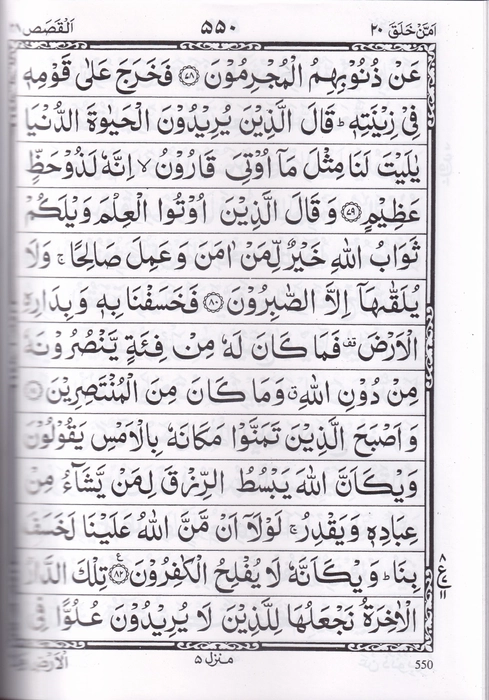 اَمَّنْ خَلَقَ ٢٠ ٥٥٠ اَلْقَصَص
عَنْ ذُنُوْبِهِمُ الْمُجْرِمُوْنَ ﴿٧٨﴾ فَخَرَجَ عَلٰى قَوْمِهٖ
فِيْ زِيْنَتِهٖ ؕ قَالَ الَّذِيْنَ يُرِيْدُوْنَ الْحَيٰوةَ الدُّنْيَا
يٰلَيْتَ لَنَا مِثْلَ مَاۤ اُوْتِيَ قَارُوْنُ ۙ اِنَّهٗ لَذُوْ حَظٍّ
عَظِيْمٍ ﴿٧٩﴾ وَ قَالَ الَّذِيْنَ اُوْتُوا الْعِلْمَ وَيْلَكُمْ
ثَوَابُ اللّٰهِ خَيْرٌ لِّمَنْ اٰمَنَ وَ عَمِلَ صَالِحًا ۚ وَلَا
يُلَقّٰىهَاۤ اِلَّا الصّٰبِرُوْنَ ﴿٨٠﴾ فَخَسَفْنَا بِهٖ وَ بِدَارِهِ
الْاَرْضَ ۟ فَمَا كَانَ لَهٗ مِنْ فِئَةٍ يَّنْصُرُوْنَهٗ
مِنْ دُوْنِ اللّٰهِ ۗ وَ مَا كَانَ مِنَ الْمُنْتَصِرِيْنَ
وَ اَصْبَحَ الَّذِيْنَ تَمَنَّوْا مَكَانَهٗ بِالْاَمْسِ يَقُوْلُوْنَ
وَيْكَاَنَّ اللّٰهَ يَبْسُطُ الرِّزْقَ لِمَنْ يَّشَآءُ مِنْ
عِبَادِهٖ وَ يَقْدِرُ ۚ لَوْلَاۤ اَنْ مَّنَّ اللّٰهُ عَلَيْنَا لَخَسَفَ
بِنَا ؕ وَيْكَاَنَّهٗ لَا يُفْلِحُ الْكٰفِرُوْنَ ﴿٨٢﴾ تِلْكَ الدَّارُ
الْاٰخِرَةُ نَجْعَلُهَا لِلَّذِيْنَ لَا يُرِيْدُوْنَ عُلُوًّا فِي
٨ ع ١١
منزل ٥
الْاَرْضِ
550